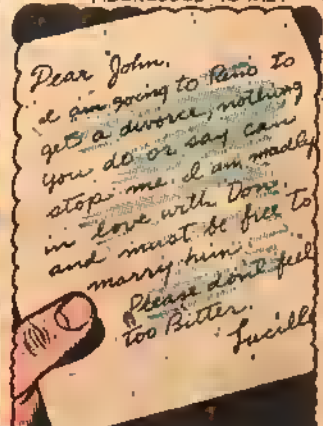 Dear John,
I am going to Reno to
get a divorce, nothing
you do or say can
stop me. I am madly
in love with Don
and must be free to
marry him.
Please don't feel
too Bitter.
Lucille